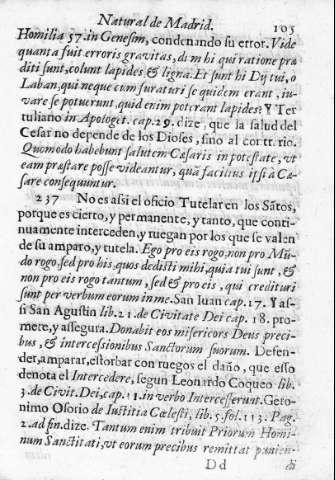 Natural de Madrid. 105
Homilia 57. in Genesim, condenando su error. Vide
quanta fuit erroris gravitas, di m hi qui ratione præ
diti sunt, colunt lapides, & ligna. Et sunt hi Dij tui, o
Laban, qui neque cum furaturi se quidem erant, iu-
vare se potuerunt, quid enim poterant lapides? Y Ter
tuliano in Apologet. cap. 29. dize, que la salud del
Cesar no depende de los Dioses, sino al cortrario.
Quomodo habebunt salutem Cæsaris in potestate, vt
eam præstare posse videantur, quã facilius ipsi à Cæ-
sare consequuntur.
237 No es assi el oficio Tutelar en los Sãtos,
porque es cierto, y permanente, y tanto, que conti-
nuamente interceden, y ruegan por los que se valen
de su amparo, y tutela. Ego pro eis rogo, non pro Mũ-
do rogo, sed pro his, quos dedisti mihi, quia tui sunt, &
non pro eis rogo tantum, sed & pro eis, qui credituri
sunt per verbum eorum in me. San Iuan cap. 17. Y as-
si San Agustin lib. 21. de Civitate Dei cap. 18. pro-
mete, y assegura. Donabit eos misericors Deus preci-
bus, & intercessionibus Sanctorum suorum. Defen-
der, amparar, estorbar con ruegos el daño, que esso
denota el Intercedere, segun Leonardo Coqueo lib.
3. de Civit. Dei, cap. 11. in verbo Intercesserunt. Gero-
nimo Osorio de Iustitia Cœlesti, lib. 5. fol. 113. Pag.
2. ad fin. dize. Tantum enim tribuit Priorum Homi-
num Sanctitati, vt eorum precibus remittat pœnien-
Dd di